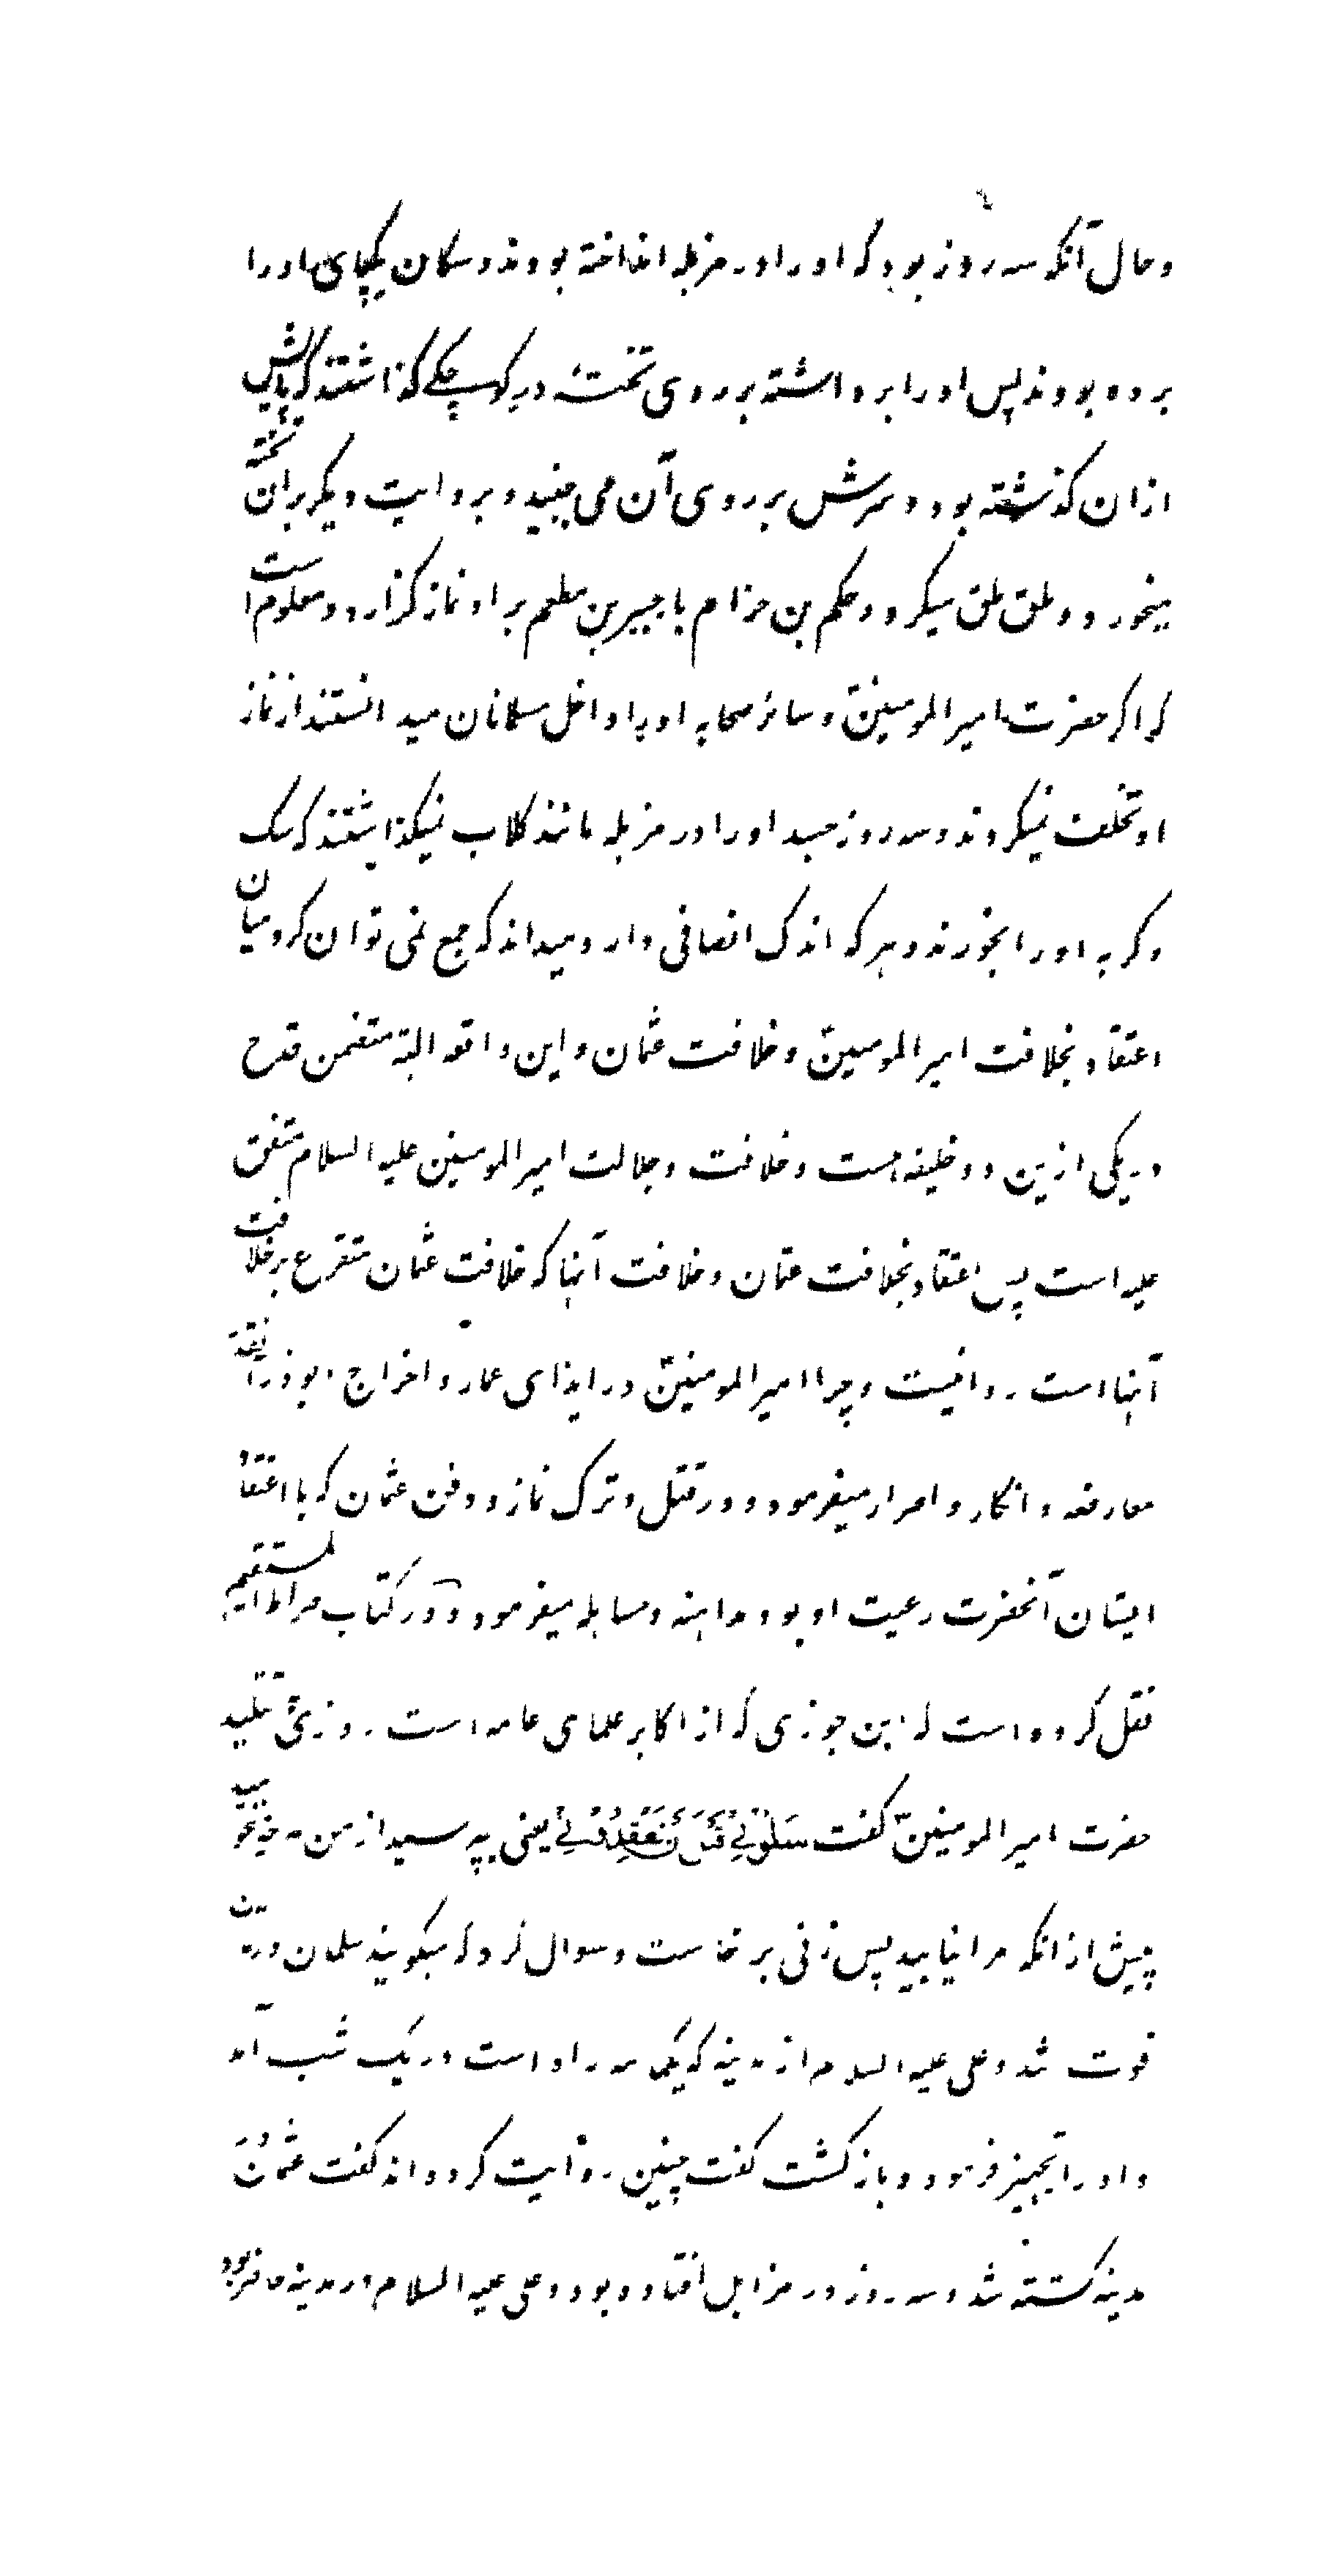 و حال آنکه سه روز بود که او را در مزبله انداخته بودند و سگان یکپای او را
برده بودند پس او را برداشته بر روی تختهٔ در کوچکی گذاشتند که پایش
ازان گذشته بود و سرش بر روی آن می جنبید و بروایت دیگر بران تخته
میخورد و طق طق میکرد و حکم بن حزام یا جبیر بن مطعم بر او نماز گزارد و معلوم است
که اگر حضرت امیر المومنینؑ و سائر صحابه او را داخل مسلمانان میدانستند از نماز
او تخلف نمیکردند و سه روز جسد او را در مزبله مانند کلاب نمیگذاشتند که سگ
و گربه او را بخورند و هر که اندک انصافی دارد میداند که جمع نمی توان کرد میان
اعتقاد بخلافت امیر المومنینؑ و خلافت عثمان و این واقعه البته متضمن قدح
در یکی ازین دو خلیفه هست و خلافت و جلالت امیر المومنین علیه السلام متفق
علیه است پس اعتقاد بخلافت عثمان و خلافت آنها که خلافت عثمان متفرع بر خلافت
آنها است روا نیست و چرا امیر المومنینؑ در ایذای عمار و اخراج ابوذر آنقدر
معارضه و انکار و اصرار میفرمود و در قتل و ترک نماز و دفن عثمان که با اعتقاد
ایشان آنحضرت رعیت او بود مداهنه و مساهله میفرمود و در کتاب صراط المستقیم
نقل کرده است که ابن جوزی که از اکابر علمای عامه است روزی بتقلید
حضرت امیر المومنینؑ گفت سَلُوْنِیْ قَبْلَ اَنْ تَفْقِدُوْنِیْ یعنی بپرسید از من هر چه میخواهید
پیش از انکه مرا نیابید پس زنی برخاست و سوال کرد که میگویند سلمان در مداین
فوت شد و علی علیه السلام از مدینه که یکماهه راه است در یک شب آمد
و او را تجهیز فرمود و باز گشت گفت چنین روایت کرده اند گفت عثمان در
مدینه کشته شد و سه روز در مزابل افتاده بود و علی علیه السلام در مدینه حاضر بود